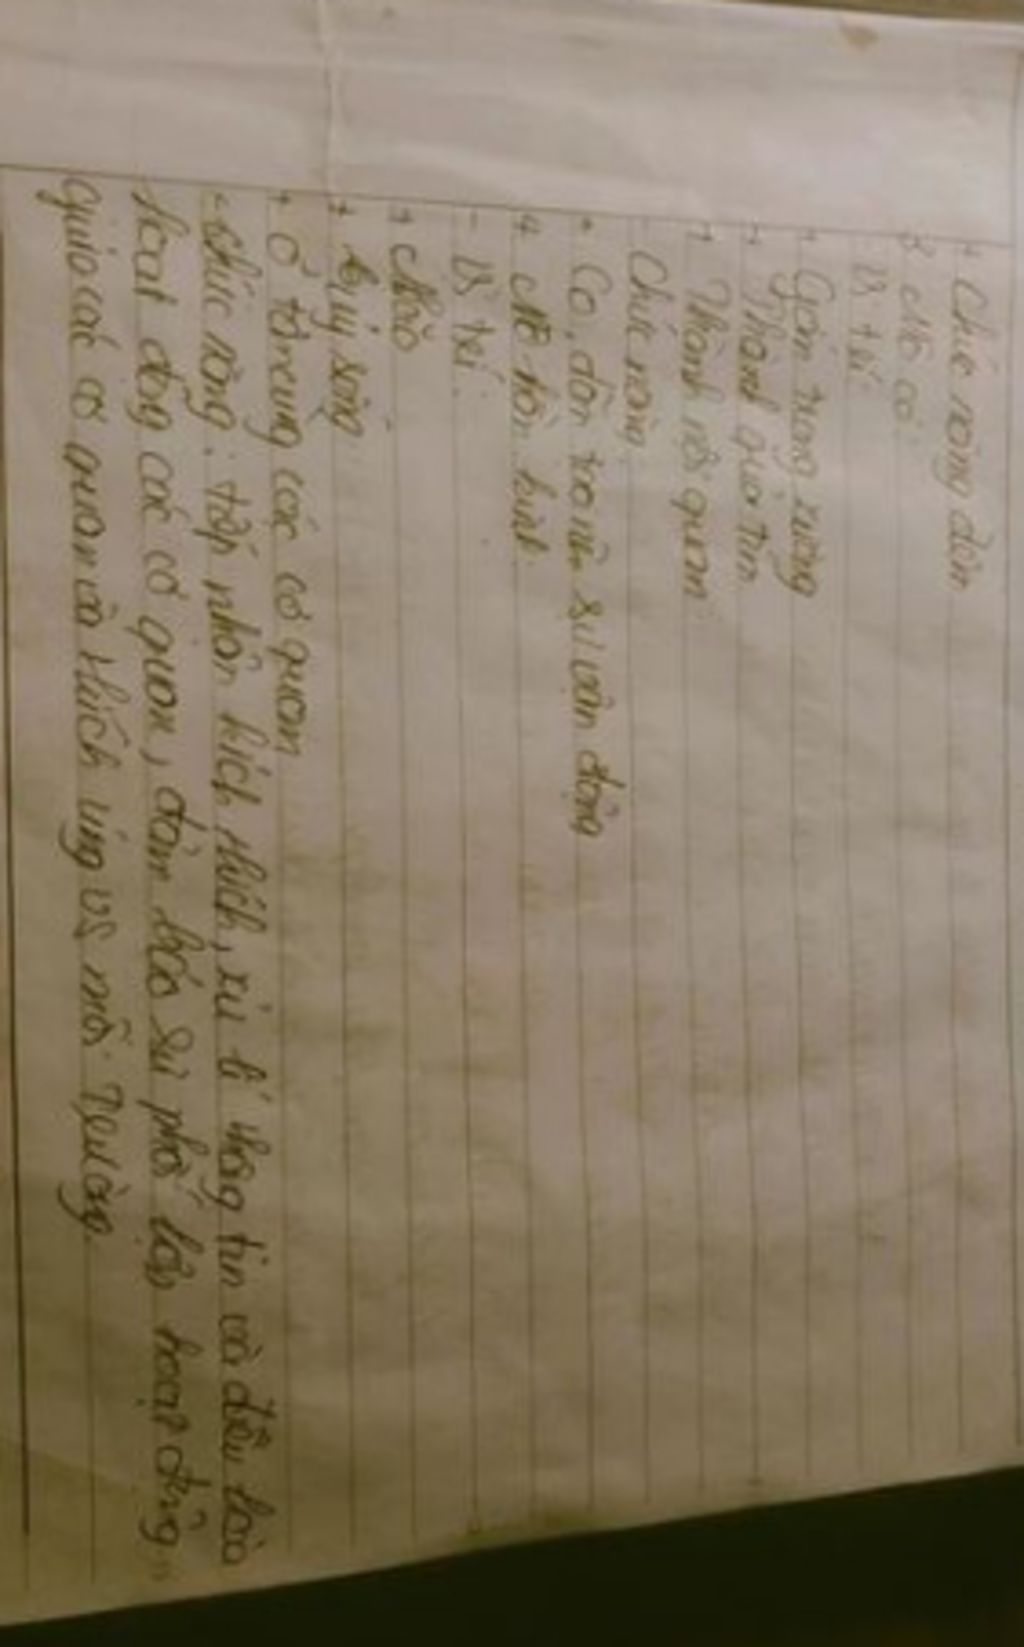 + Chức năng đệm
3 Mô cơ
Vị trí
+ Gắn trong xương
+ Thành quả tim
+ Thành nội quan
Chức năng
+ Co, dãn tạo nên sự vận động
4 Mô thần kinh
- Vị trí
+ Não
+ tuỷ sống
+ Ở tận cùng các cơ quan
- chức năng: tiếp nhận kích thích, xử lí thông tin và điều hoà
hoạt động các cơ quan, đảm bảo sự phối hợp hoạt động
giữa các cơ quan và thích ứng vs môi trường